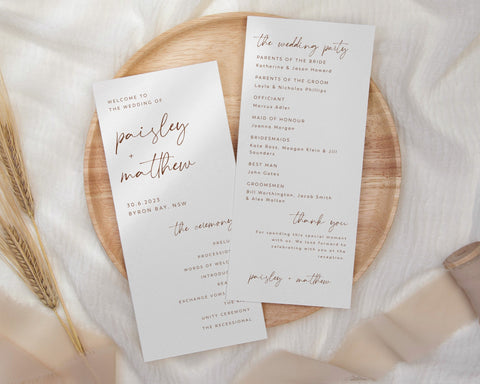 WELCOME TO
THE WEDDING OF
paisley
+
matthew
30.6.2023
BYRON BAY, NSW
the ceremony
PRELU
PROCESSION
WORDS OF WELCO
INTRODUC
REA
EXCHANGE VOWS
UNITY CEREMONY
THE RECESSIONAL
the wedding party
PARENTS OF THE BRIDE
Katherine & Jason Howard
PARENTS OF THE GROOM
Layla & Nicholas Phillips
OFFICIANT
Marcus Adler
MAID OF HONOUR
Jeanne Morgan
BRIDESMAIDS
Kate Ross, Meagan Klein & Jill
Saunders
BEST MAN
John Gates
GROOMSMEN
Bill Worthington, Jacob Smith
& Alex Walton
thank you
For spending this special moment
with us. We look forward to
celebrating with you at the
reception.
paisley + matthew